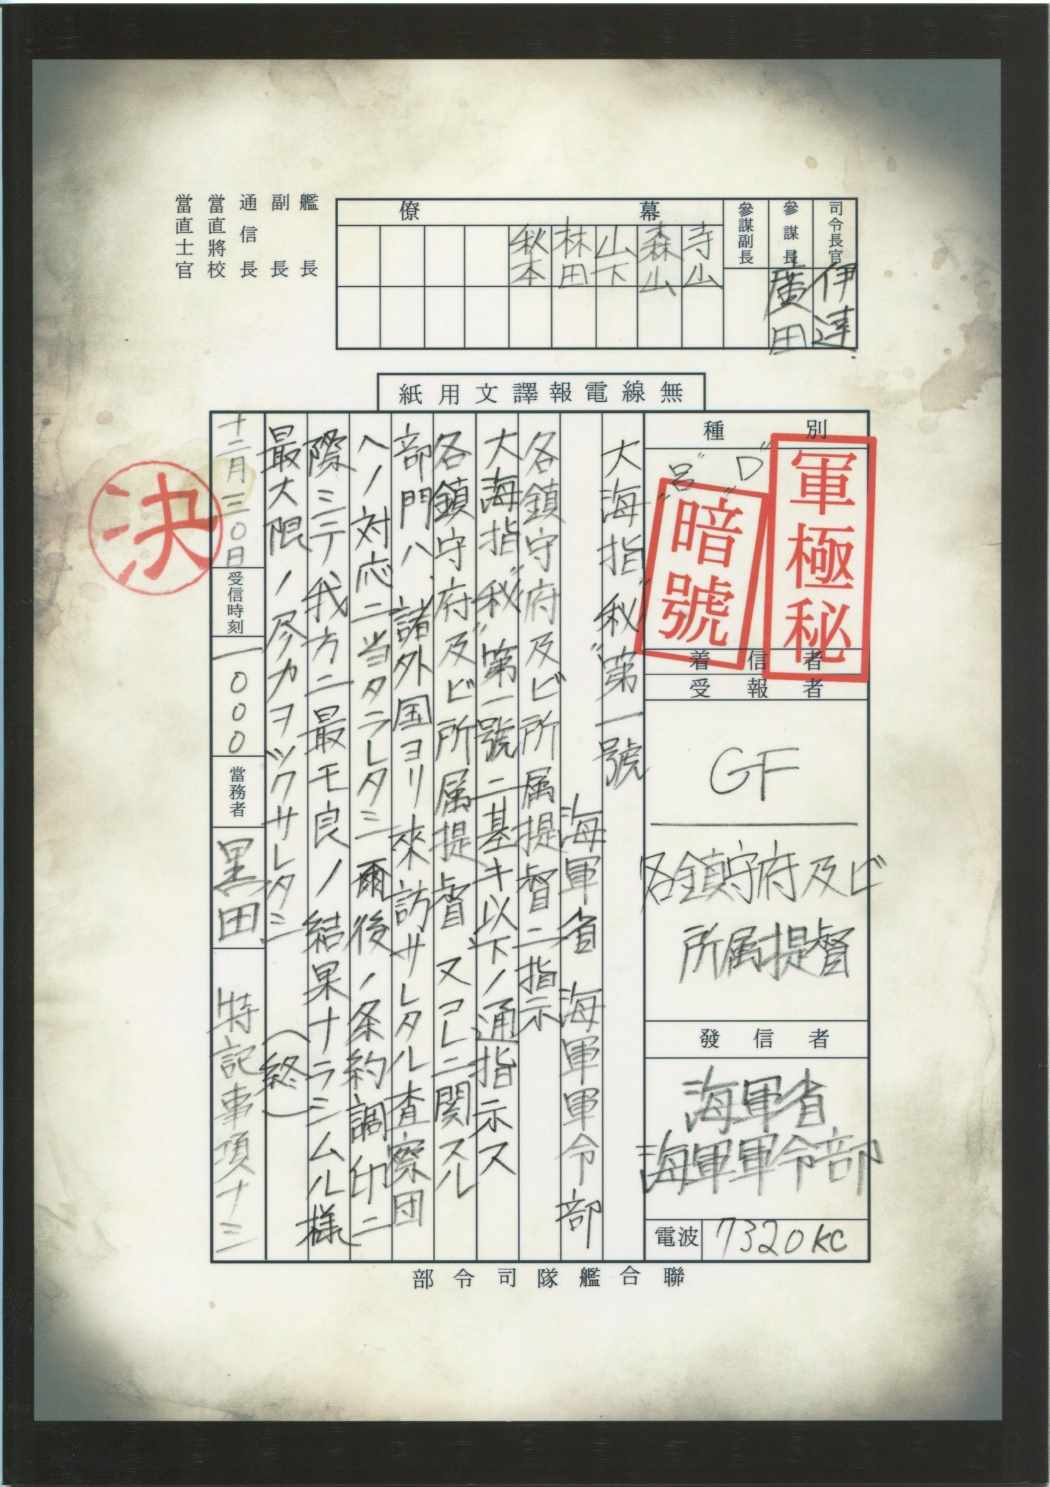 司令長官
伊達
參謀長
廣田
參謀副長
幕僚
寺山
森山
山下
林田
秋本
艦長
副長
通信長
當直將校
當直士官
無線電報譯文用紙
種別
"D"
"呂"
軍極秘
暗號
着信者
受報者
GF
各鎮守府及ビ
所属提督
發信者
海軍省
海軍軍令部
電波
7320KC
大海指"秘"第一號
海軍省 海軍軍令部
各鎮守府及ビ所属提督ニ指示
大海指"秘"第一號ニ基キ以下ノ通指示ス
各鎮守府及ビ所属提督、又コレニ関スル
部門ハ、諸外国ヨリ来訪サレタル査察団
ヘノ対応ニ当タラレタシ 爾後ノ条約調印ニ
際シテ、我方ニ最モ良ノ結果ナラシムル様
最大限ノ尽力ヲツクサレタシ (終)
十二月三〇日
受信時刻
一〇〇〇
當務者
黒田
特記事項ナシ
決
聯合艦隊司令部